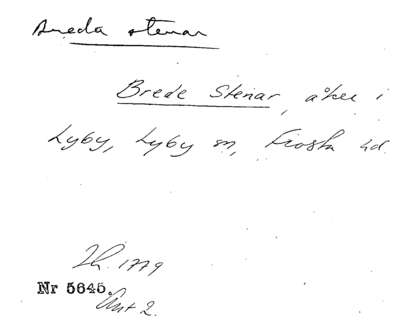 Breda stenar
Brede Stenar, åker i
Lyby, Lyby sn, Frosta hd.
Th. 1779
Nr 5645.
Ant 2.